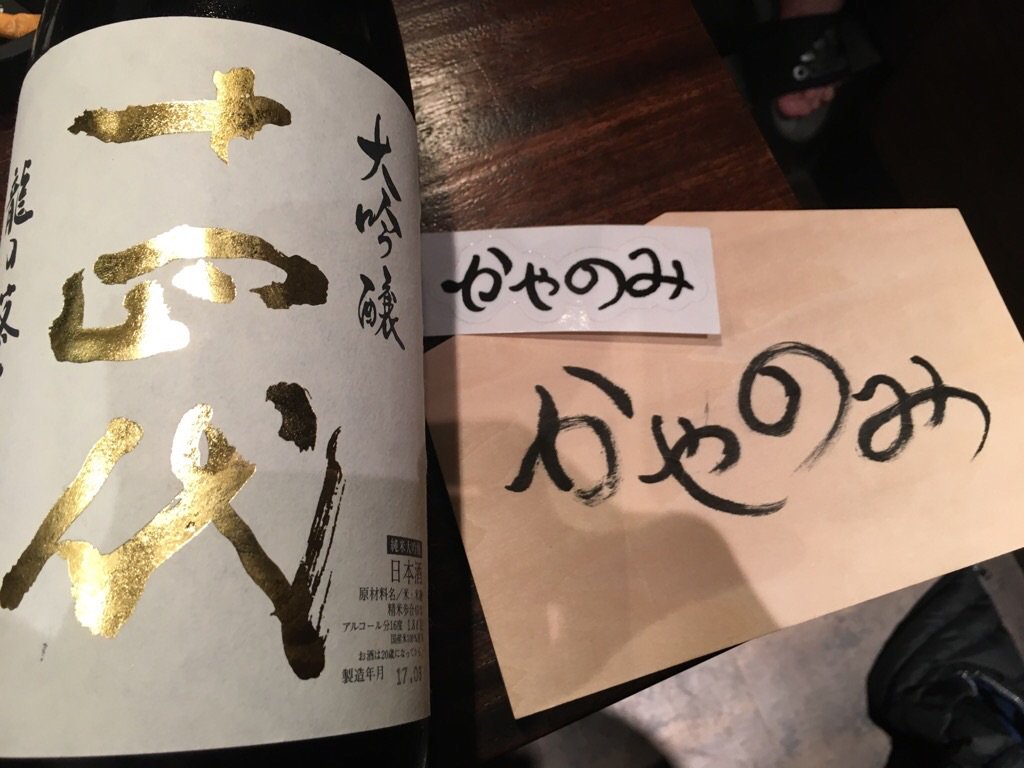 十四代
大吟醸
龍の落
純米大吟醸
日本酒
原材料名/米・米麹
精米歩合
アルコール分16度 1.8ℓ
国産米100%
お酒は20歳になってから
製造年月 17.09
かやのみ
かやのみ